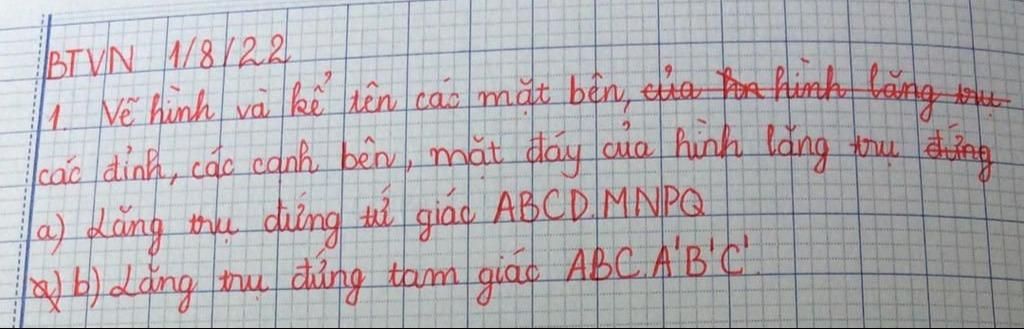 BTVN 1/8/22
1. Vẽ hình và kể tên các mặt bên, của hình lăng trụ
các đỉnh, các cạnh bên, mặt đáy của hình lăng trụ đứng
a) Lăng trụ đứng tứ giác ABCD.MNPQ
b) Lăng trụ đứng tam giác ABC.A'B'C'.